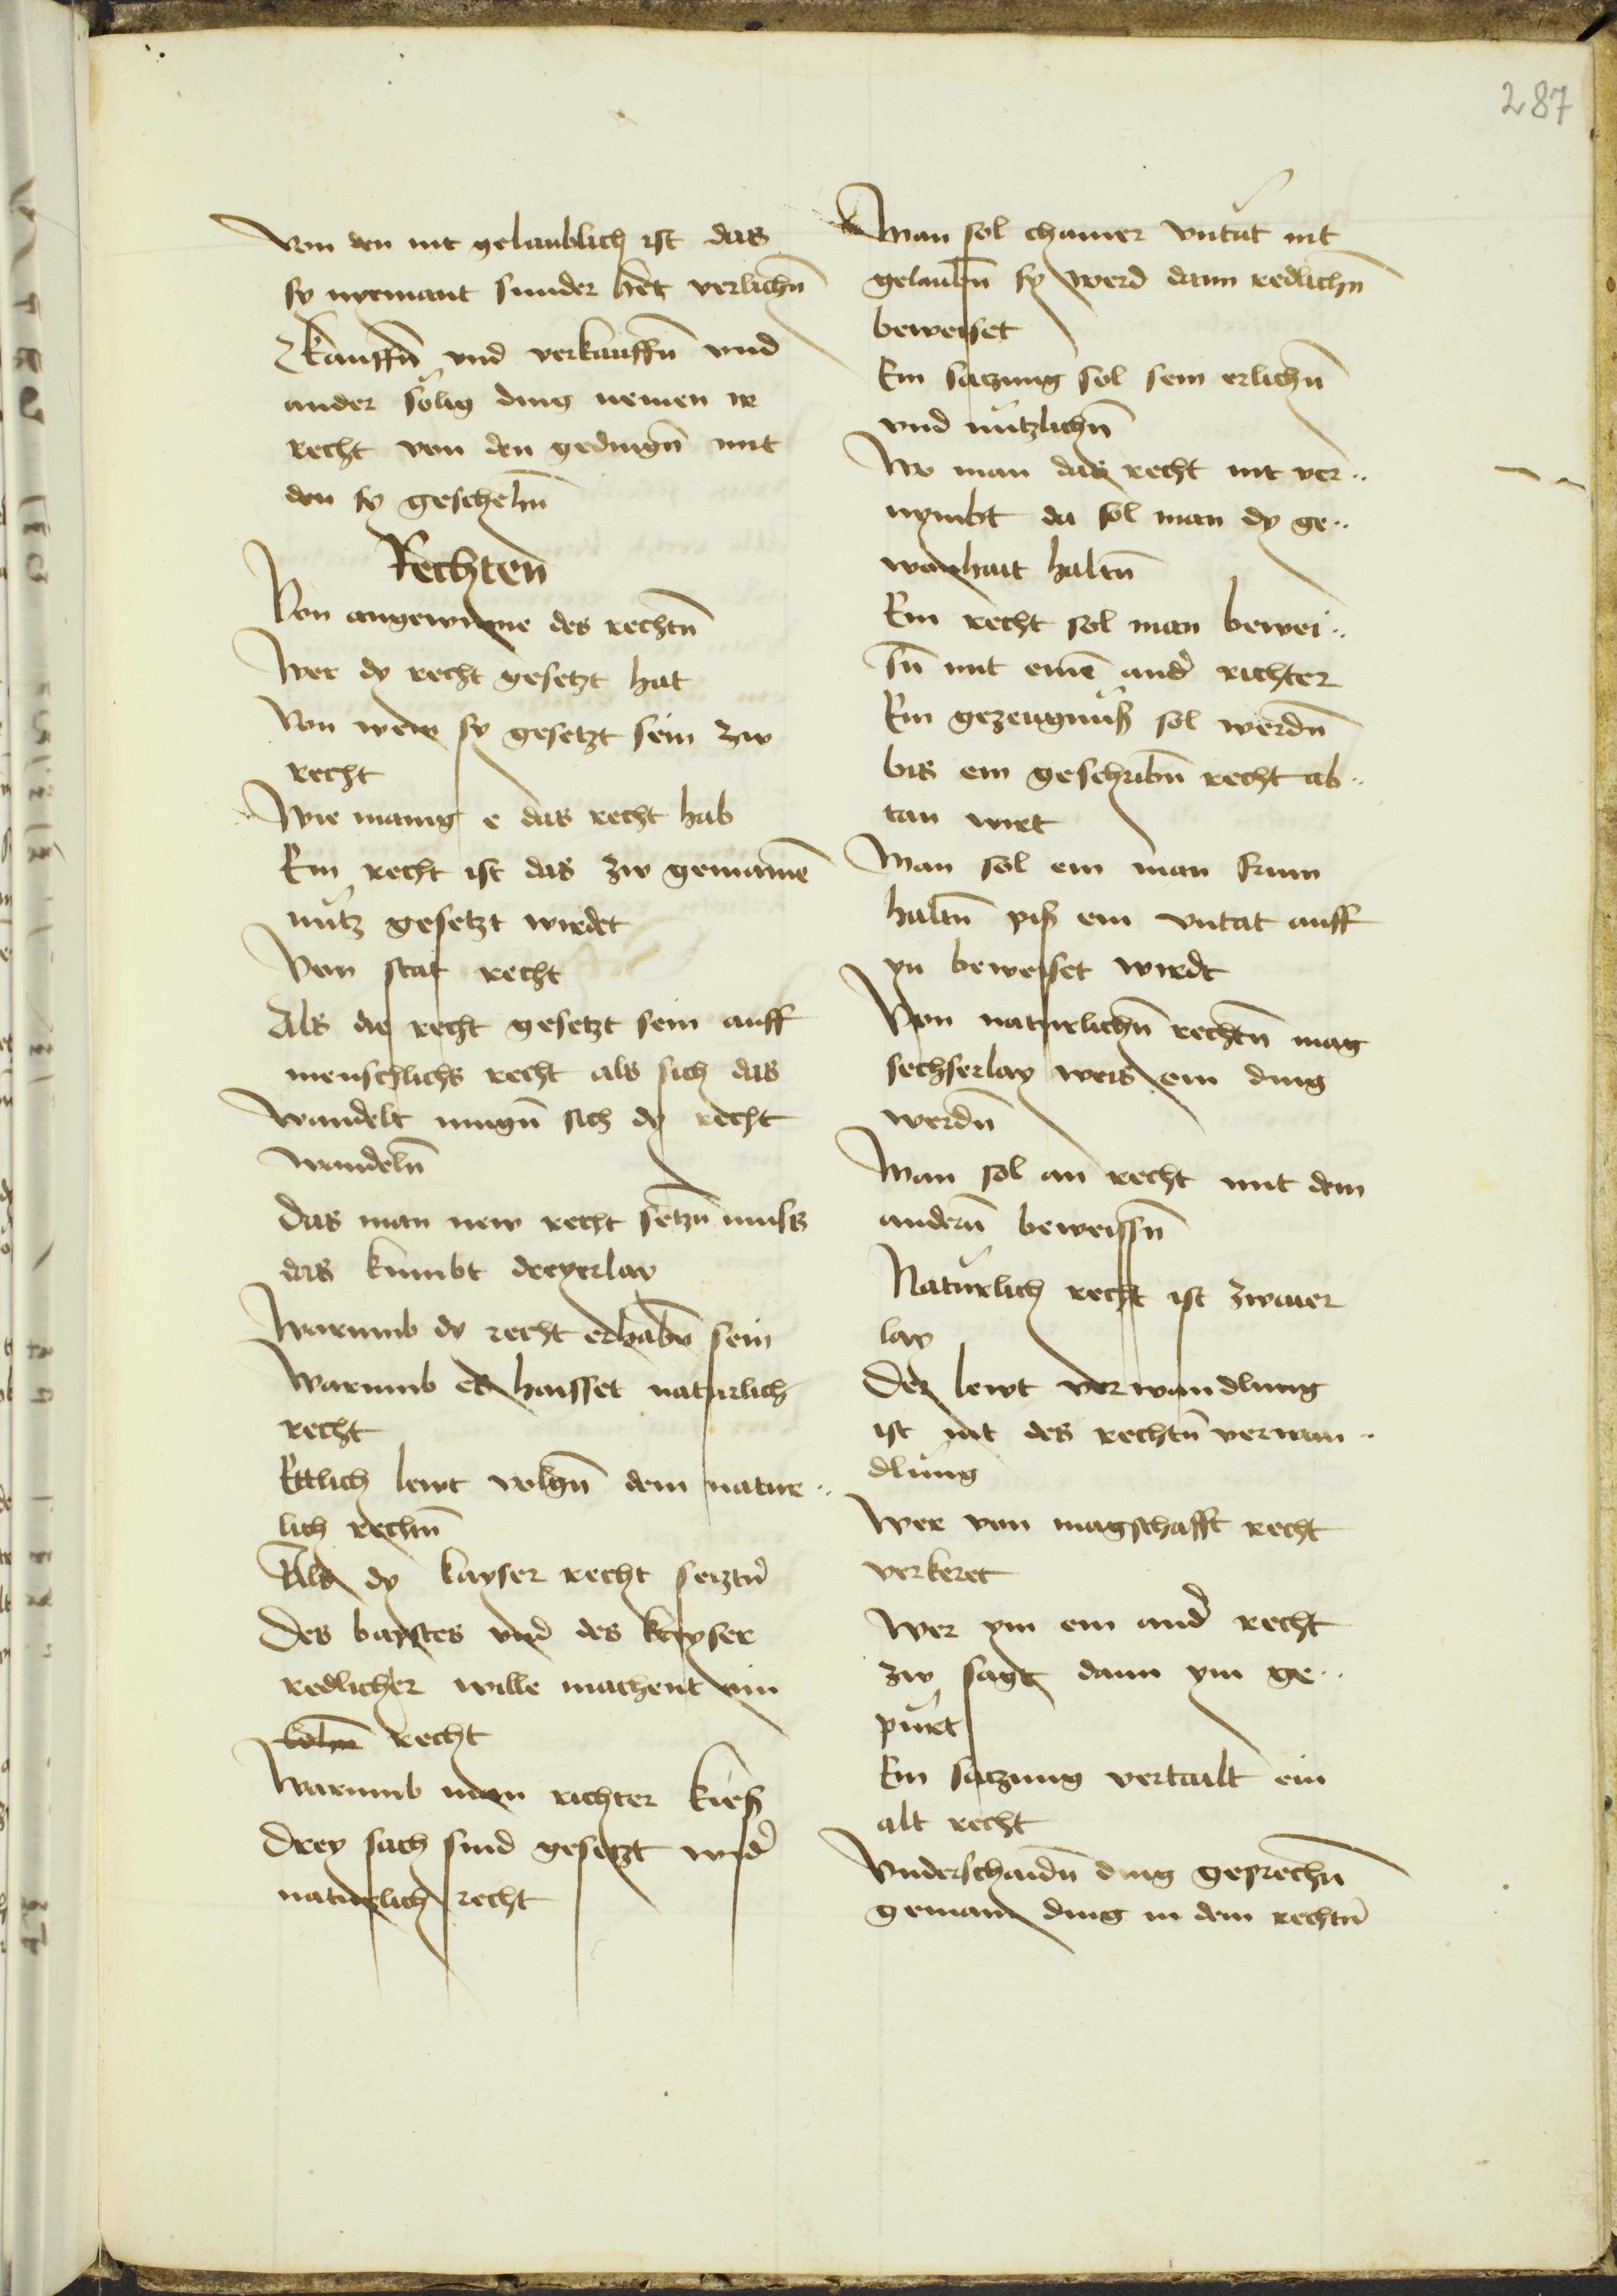 287
Von den nit gelaublich ist das
sy nyemant sunder het verlichn̄
Kauffn̄ vnd verkauffn̄ vnd
ander sölig ding nemen ir
recht von den gedingn̄ mit
den sy geschehn̄
Rechten
Von angewinne des rechtn̄
Wer dy recht gesetzt hat
Von wem sy gesetzt sein zw
recht
Wie manig e das recht hab
Ein recht ist das zw gemainē
nutz gesetzt wirdet
Von stat recht
Als die recht gesetzt sein auff
menschlichs recht als sich das
wandelt mugn̄ sich dy recht
wandeln̄
Das man new recht setzn̄ muss
das kumbt dreyerlay
Warumb dy recht erhabn̄ sein
Warumb es haisset naturlich
recht
Ettlich lewt volgn̄ dem natur¨
lich rechtn̄
Als dy kayser recht setztn̄
Des babstes vnd des kayser
redlicher wille machent ein
recht
Warumb man richter kieß
Drey sach sind gesetzt wid̄
naturlich recht
Man sol chainer vntat nit
gelaubn̄ sy werd dann redlichn̄
beweiset
Ein satzung sol sein erlichn̄
vnd nützlichn̄
Wo man das recht nit ver¨
nymbt da sol man dy ge¨
wonhait haltn̄
Ein recht sol man bewei¨
sn̄ mit einē and̄ richter
Ein gezeugnuß sol werdn̄
bis ein geschribn̄ recht ab¨
tan wirt
Man sol ein man frum
haltn̄ piß ein vntat auff
yn beweiset wirdt
Von naturlichn̄ rechtn̄ mag
sechserlay weis ein ding
werdn̄
Man sol an recht mit dem
andern̄ beweissn̄
Natürlich recht ist zwaier
lay
Der lewt verwandlung
ist nit des rechtn̄ verwan¨
dlung
Wer von magschafft recht
verkeret
Wer ym ein and̄ recht
zw sagt dann ym ge¨
pürt
Ein satzung vertailt ein
alt recht
Vnderschaidn̄ ding gesprechn̄
gemain ding in dem rechtn̄